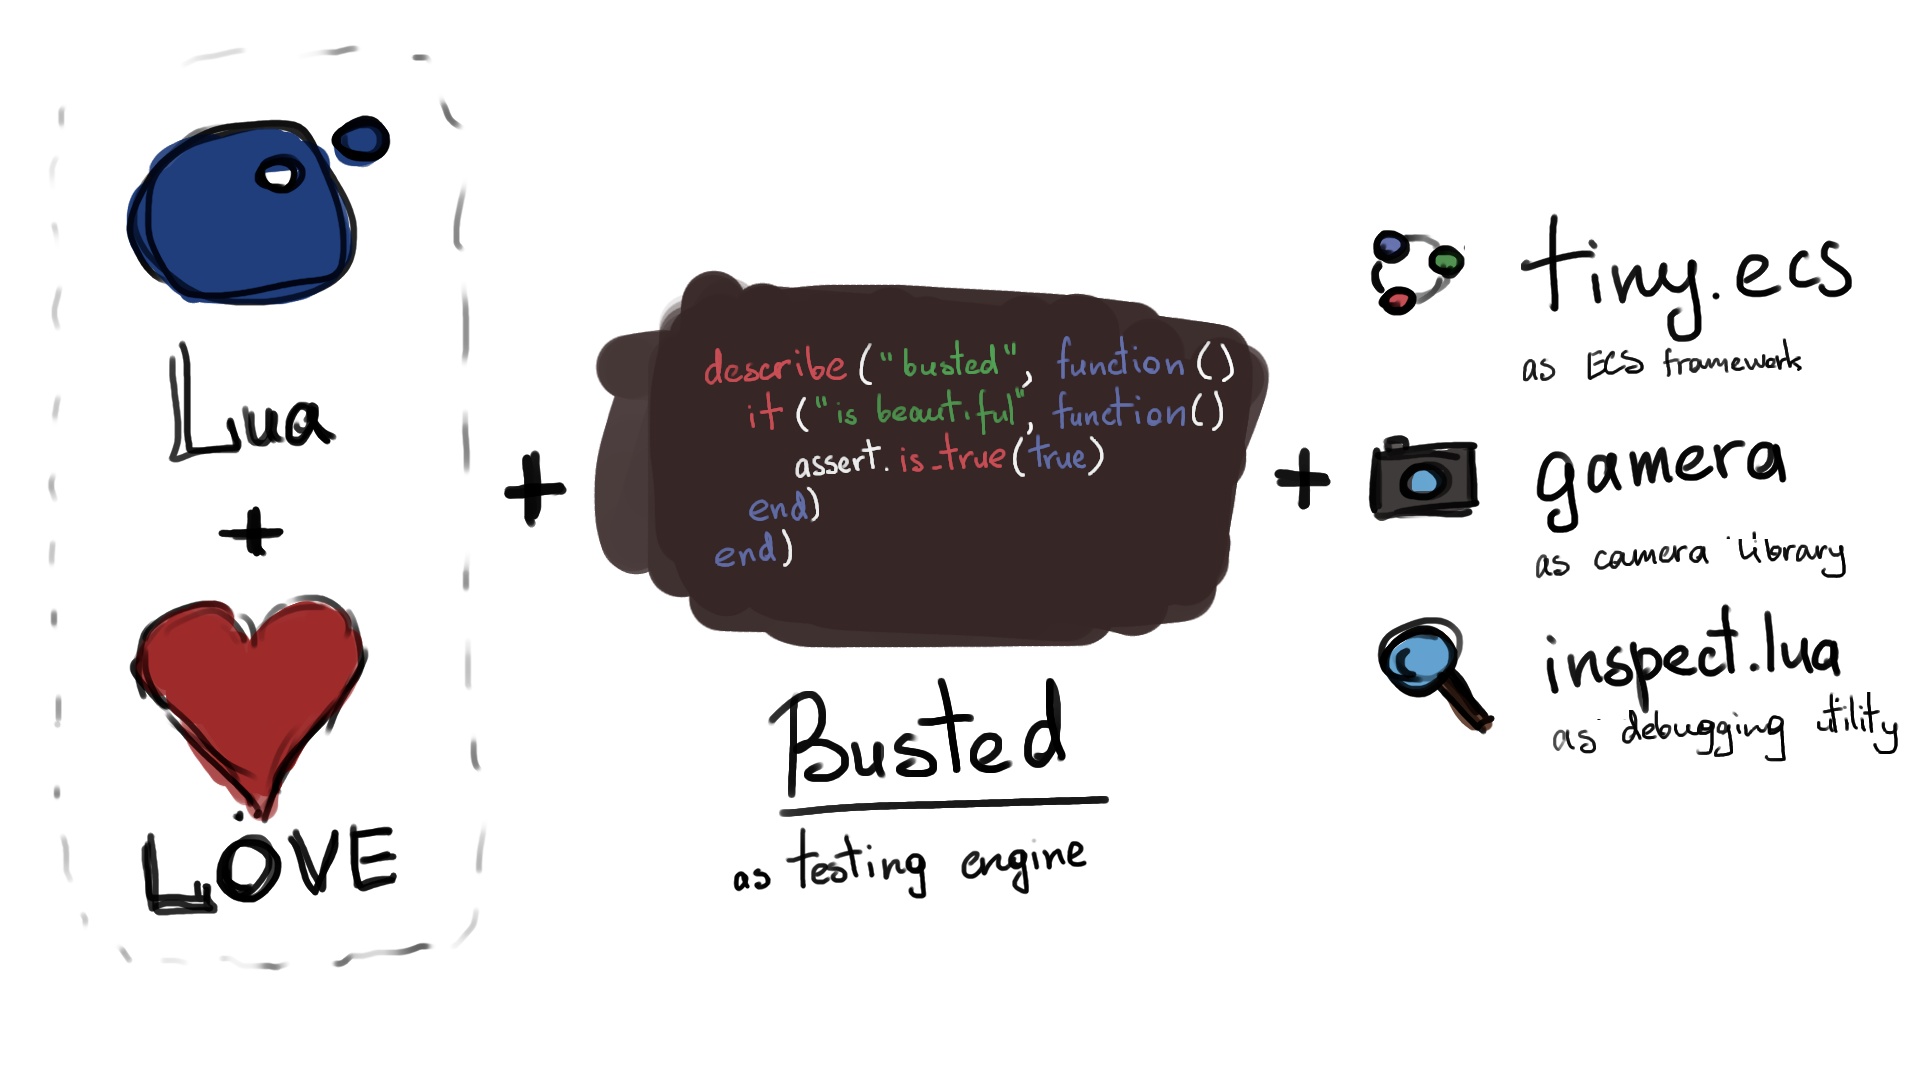 Lua
+
LÖVE
+
describe("busted", function()
it("is beautiful", function()
assert.is_true(true)
end)
end)
Busted
as testing engine
+
tiny.ecs
as ECS framework
gamera
as camera library
inspect.lua
as debugging utility